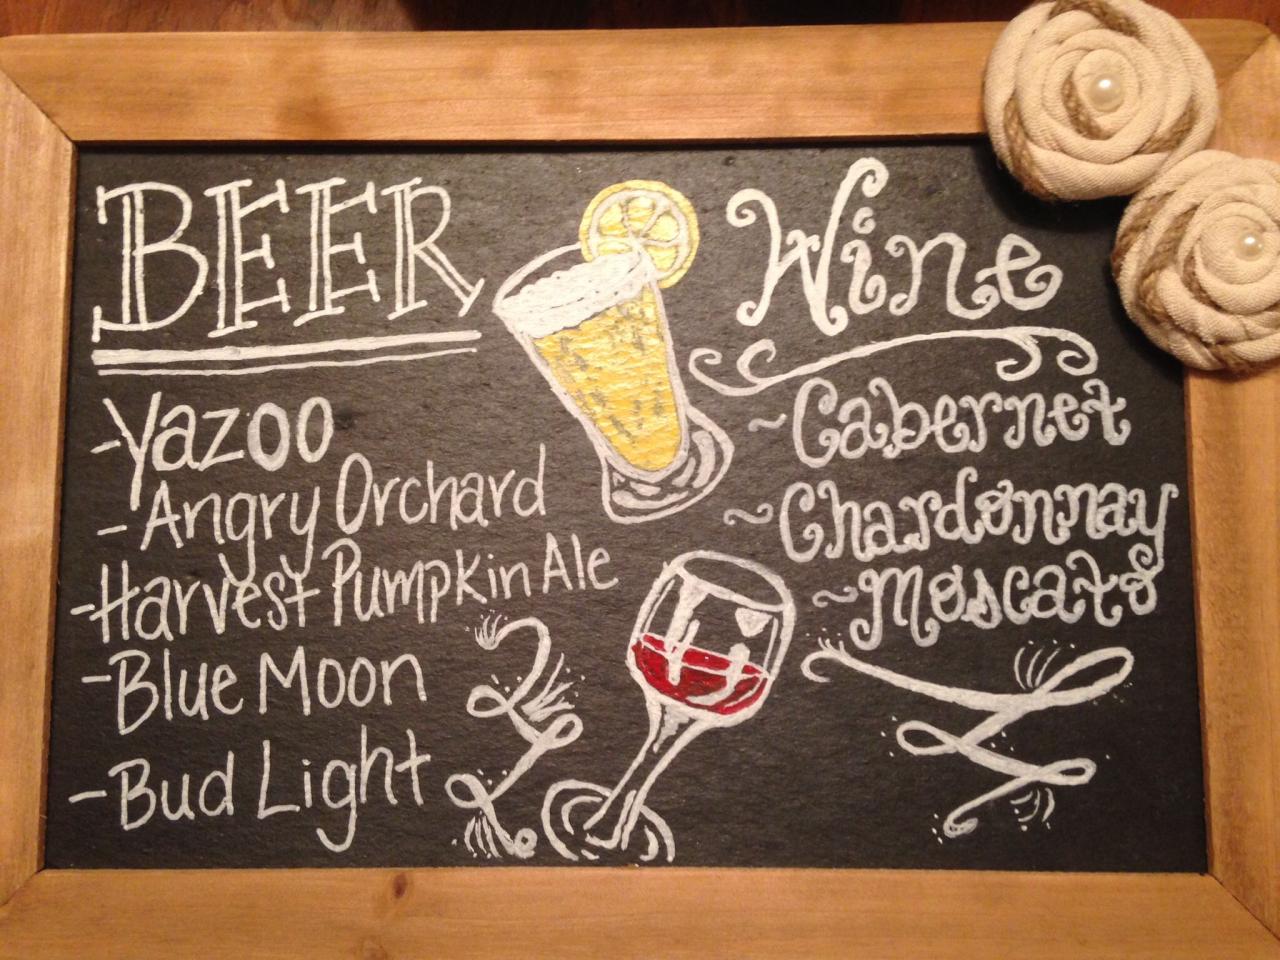 BEER
-Yazoo
-Angry Orchard
-Harvest Pumpkin Ale
-Blue Moon
-Bud Light
Wine
~Cabernet
~Chardonnay
~Moscato